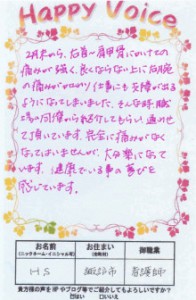 Happy Voice
2月末から、右首〜肩甲骨にかけての
痛みが強く、良くならない上に右腕
の痛みがひどくなり仕事にも支障が出る
ようになってしまいました。そんな時、職
場の同僚から紹介してもらい、通わせ
て頂いています。完全に痛みがなく
なってはいませんが、大分楽になって
います。連鎖でいる事の
感じています。
お名前
(ニックネーム・イニシャル可)
お住まい
(市町村)
御職業
H S
釧路市
看護師
貴方様の声をHPやブログ等でご紹介してもよろしいですか?
はい いいえ